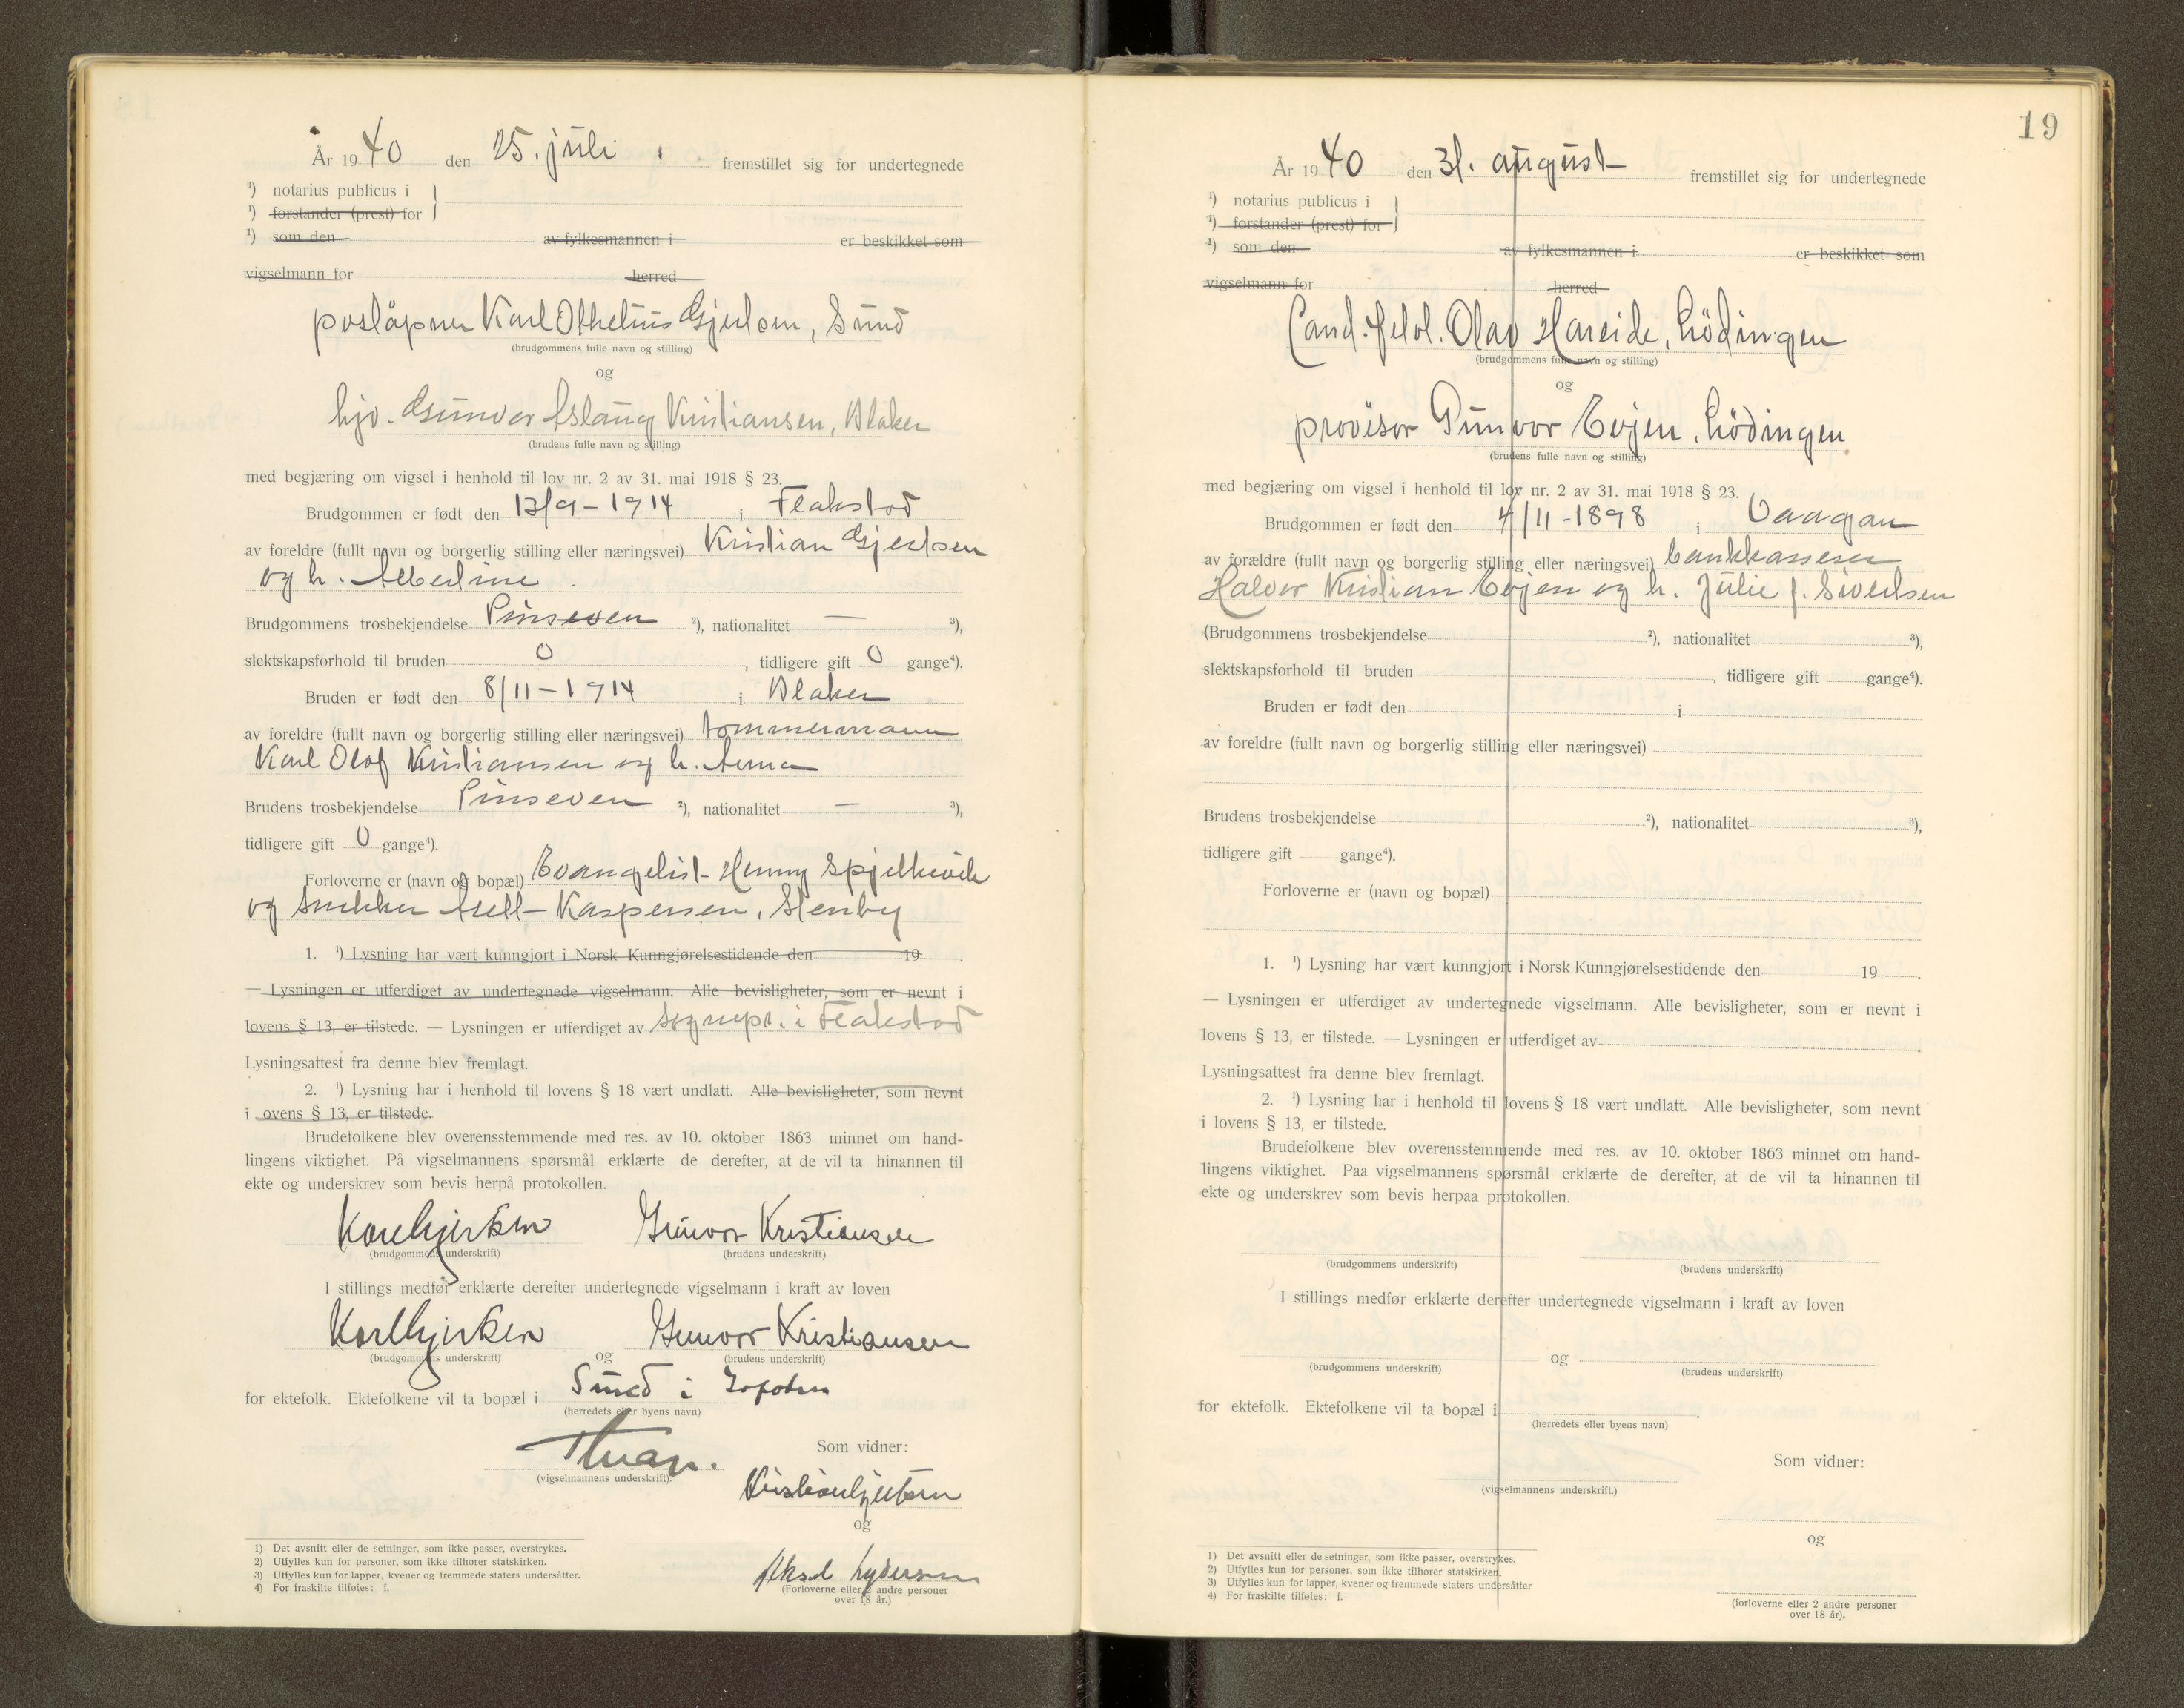 År 1940 den 25. juli fremstillet sig for undertegnede
¹) notarius publicus i
¹) forstander (prest) for
¹) som den av fylkesmannen i er beskikket som
vigselmann for herred
poståpner Karl Othelius Gjertsen, Sund
(brudgommens fulle navn og stilling)
og
hjv. Gunvor Aslaug Kristiansen, Blaker
(brudens fulle navn og stilling)
med begjæring om vigsel i henhold til lov nr. 2 av 31. mai 1918 § 23.
Brudgommen er født den 13/9-1914 i Flakstad
av foreldre (fullt navn og borgerlig stilling eller næringsvei) Kristian Gjertsen
og h. Albertine.
Brudgommens trosbekjendelse Pinseven ²), nationalitet — ³),
slektskapsforhold til bruden 0, tidligere gift 0 gange⁴).
Bruden er født den 8/11-1914 i Blaker
av foreldre (fullt navn og borgerlig stilling eller næringsvei) tømmermann
Karl Olof Kristiansen og h. Anna
Brudens trosbekjendelse Pinseven ²), nationalitet — ³),
tidligere gift 0 gange⁴).
Forloverne er (navn og bopæl) Evangelist Henny Spjelkevik
og snekker Kaspersen,
1. ¹) Lysning har vært kunngjort i Norsk Kunngjørelsestidende den 19 .
— Lysningen er utferdiget av undertegnede vigselmann. Alle bevisligheter, som er nevnt i
lovens § 13, er tilstede. — Lysningen er utferdiget av sognepr. i Flakstad
Lysningsattest fra denne blev fremlagt.
2. ¹) Lysning har i henhold til lovens § 18 vært undlatt. Alle bevisligheter, som nevnt
i ovens § 13, er tilstede.
Brudefolkene blev overensstemmende med res. av 10. oktober 1863 minnet om hand-
lingens viktighet. På vigselmannens spørsmål erklærte de derefter, at de vil ta hinannen til
ekte og underskrev som bevis herpå protokollen.
Karl Gjertsen Gunvor Kristiansen
(brudgommens underskrift) (brudens underskrift)
I stillings medfør erklærte derefter undertegnede vigselmann i kraft av loven
Karl Gjertsen og Gunvor Kristiansen
(brudgommens underskrift) (brudens underskrift)
for ektefolk. Ektefolkene vil ta bopæl i Sund i Lofoten
(herredets eller byens navn)
Som vidner:
(vigselmannens underskrift).
Kristian Gjertsen
og
Aksel Lydersen
(Forloverne eller 2 andre personer
over 18 år.)
1) Det avsnitt eller de setninger, som ikke passer, overstrykes.
2) Utfylles kun for personer, som ikke tilhører statskirken.
3) Utfylles kun for lapper, kvener og fremmede staters undersåtter.
4) For fraskilte tilføies: f.
19
År 1940 den 31. august fremstillet sig for undertegnede
¹) notarius publicus i
¹) forstander (prest) for
²) som den av fylkesmannen i er beskikket som
vigselmann for herred
Cand. filol. Olav Hareide, Lödingen
(brudgommens fulle navn og stilling)
og
provisor Gunvor Evjen, Lödingen
(brudens fulle navn og stilling)
med begjæring om vigsel i henhold til lov nr. 2 av 31. mai 1918 § 23.
Brudgommen er født den 4/11-1898 i Vaagan
av forældre (fullt navn og borgerlig stilling eller næringsvei) bankkasserer
Halvor Kristian Evjen og h. Julie f. Sivertsen
(Brudgommens trosbekjendelse ²), nationalitet ³),
slektskapsforhold til bruden , tidligere gift gange⁴).
Bruden er født den i
av foreldre (fullt navn og borgerlig stilling eller næringsvei)
Brudens trosbekjendelse ²), nationalitet ³),
tidligere gift gange⁴).
Forloverne er (navn og bopæl)
1. ¹) Lysning har vært kunngjort i Norsk Kunngjørelsestidende den 19 .
— Lysningen er utferdiget av undertegnede vigselmann. Alle bevisligheter, som er nevnt i
lovens § 13, er tilstede. — Lysningen er utferdiget av .
Lysningsattest fra denne blev fremlagt.
2. ¹) Lysning har i henhold til lovens § 18 vært undlatt. Alle bevisligheter, som nevnt
i lovens § 13, er tilstede.
Brudefolkene blev overensstemmende med res. av 10. oktober 1863 minnet om hand-
lingens viktighet. Paa vigselmannens spørsmål erklærte de derefter, at de vil ta hinannen til
ekte og underskrev som bevis herpaa protokollen.
(brudgommens underskrift) (brudens underskrift)
I stillings medfør erklærte derefter undertegnede vigselmann i kraft av loven
og
(brudgommens underskrift) (brudens underskrift)
for ektefolk. Ektefolkene vil ta bopæl i .
(herredets eller byens navn)
Som vidner:
(vigselmannens underskrift.)
og
(forloverne eller 2 andre personer
over 18 år).
1) Det avsnitt eller de setninger, som ikke passer, overstrykes.
2) Utfylles kun for personer, som ikke tilhører statskirken.
3) Utfylles kun for lapper, kvener og fremmede staters undersåtter
4) For fraskilte tilføies: f.